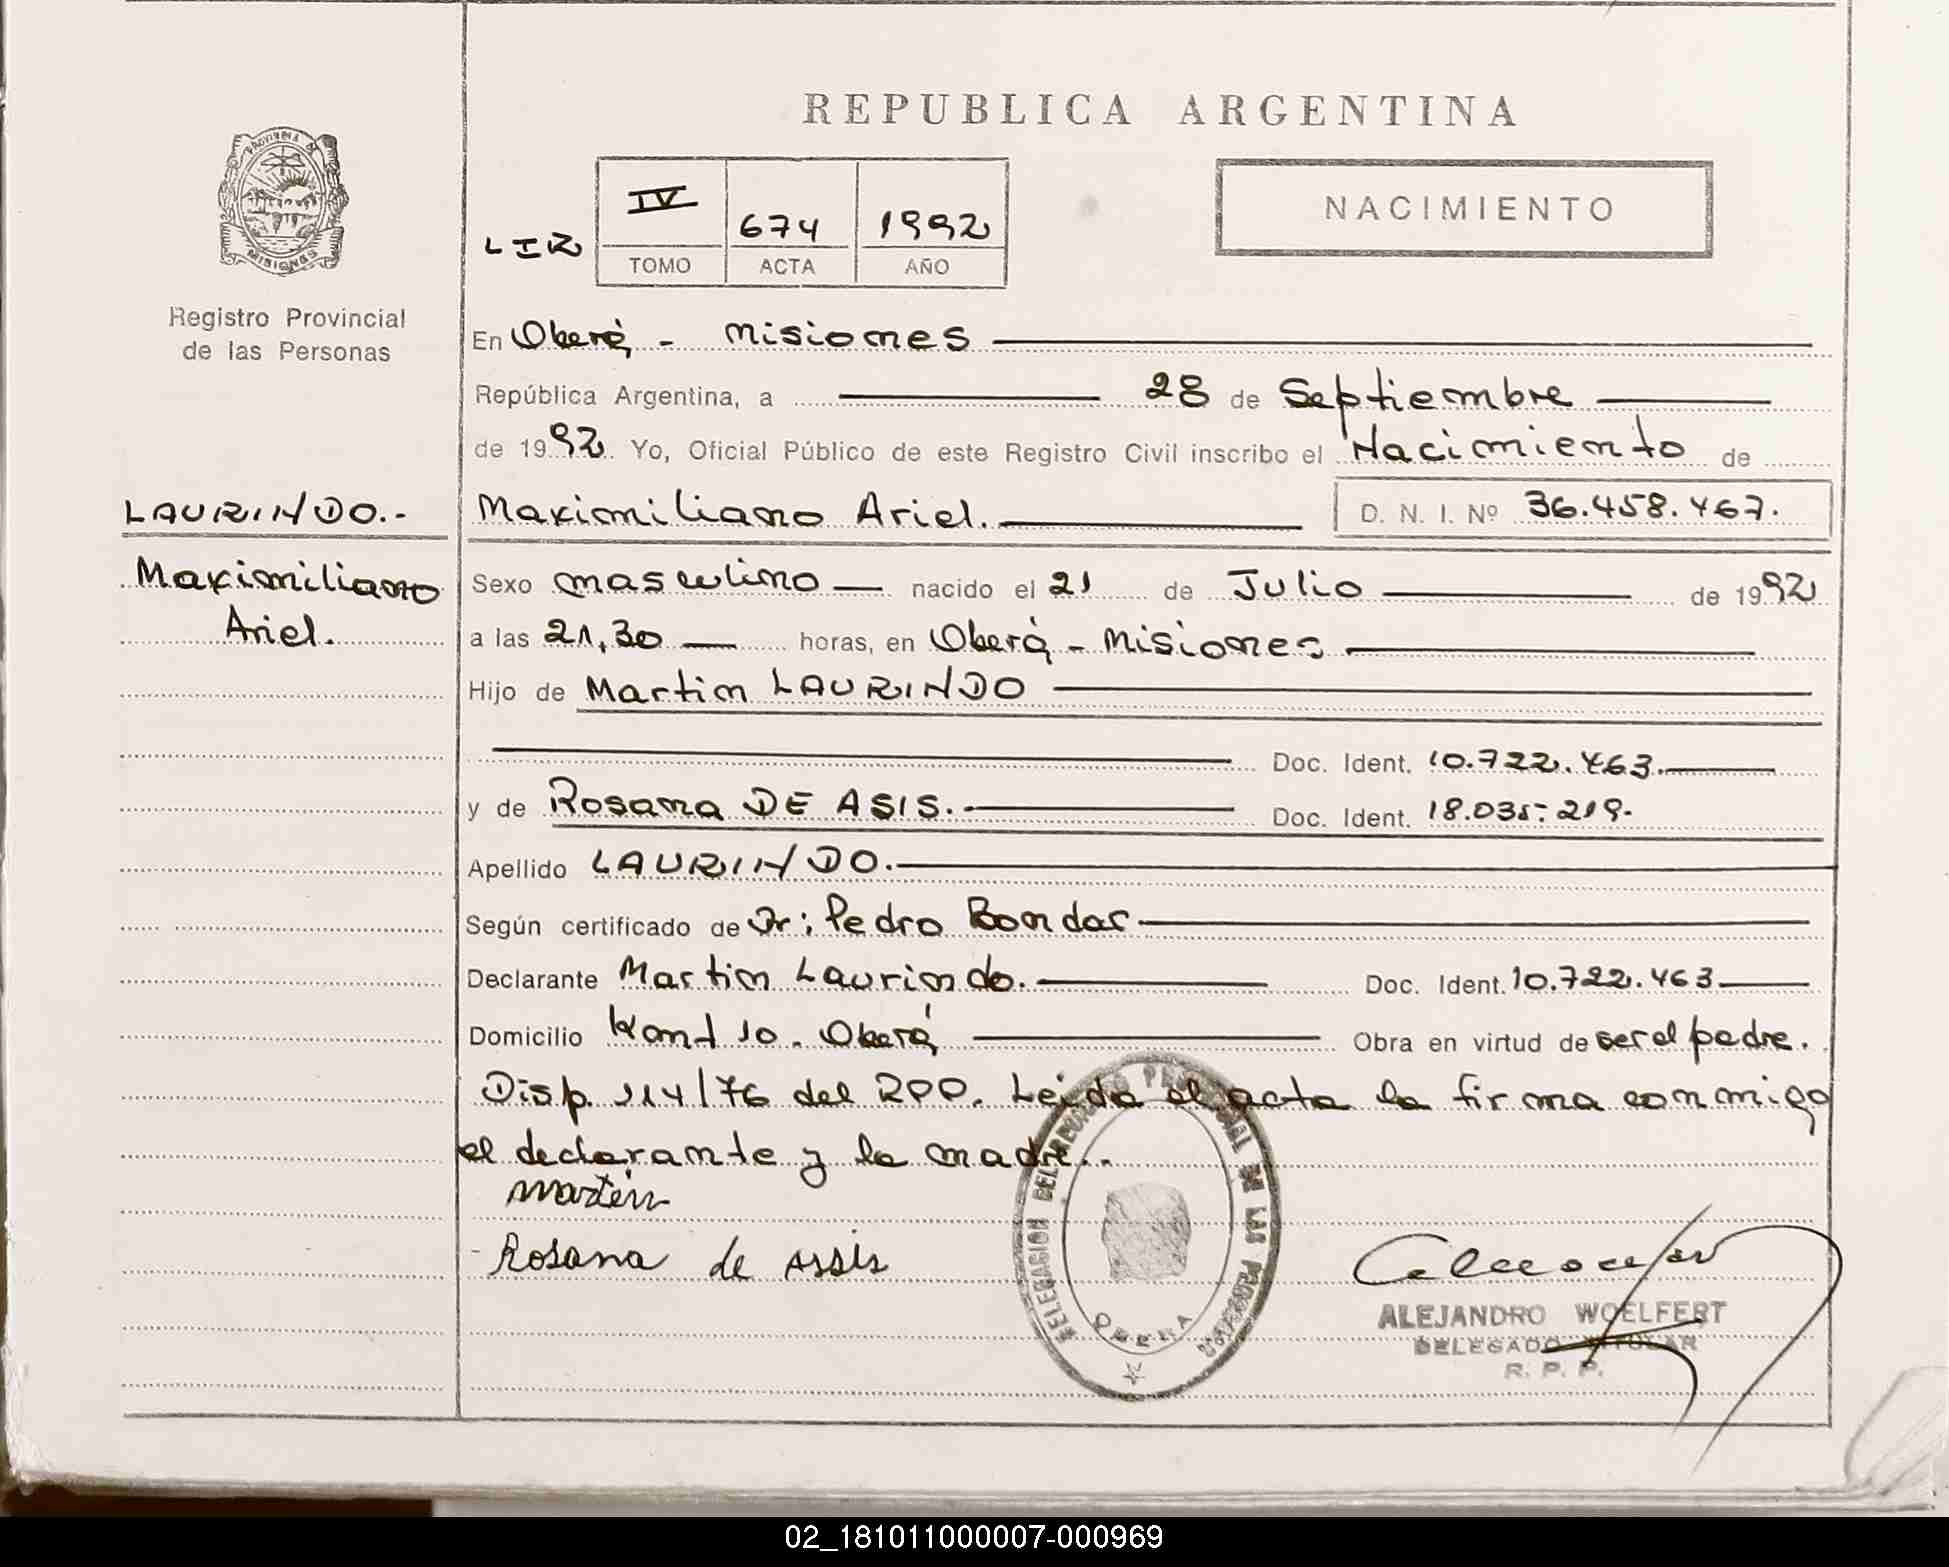 REPUBLICA ARGENTINA
PROVINCIA DE
MISIONES
Registro Provincial
de las Personas
NACIMIENTO
IV 674 1992
TOMO ACTA AÑO
En Oberá - Misiones
República Argentina, a 28 de Septiembre
de 1992 Yo, Oficial Público de este Registro Civil inscribo el Nacimiento de
LAURINDO.-
Maximiliano Ariel. D. N. I. Nº 36.458.467.
Maximiliano
Ariel.
Sexo masculino nacido el 21 de Julio de 1992
a las 21,30 horas, en Oberá - Misiones
Hijo de Martin LAURINDO
Doc. Ident. 10.722.463.
y de Rosana DE ASIS. Doc. Ident. 18.035-219.
Apellido LAURINDO.
Según certificado de Dr: Pedro Bondar
Declarante Martin Laurindo. Doc. Ident. 10.722.463
Domicilio Kant 10. Oberá Obra en virtud de ser el padre.
Disp. 114/76 del RPP. Leida el acta la firma conmigo
el declarante y la madre..
Martin
Rosana de Assis
DELEGACION DEL REGISTRO PROVINCIAL DE LAS PERSONAS
OBERA
ALEJANDRO WOELFERT
DELEGADO TITULAR
R. P. P.
02_181011000007-000969